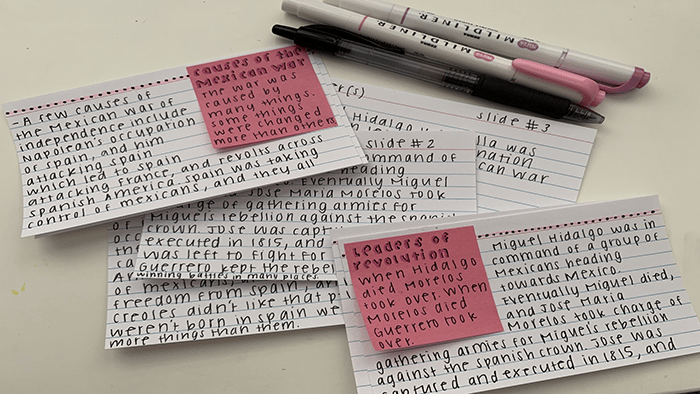 causes of the
Mexican war
The war was
caused by
many things.
some things
were changed
more than others
-A few causes of
the Mexican war of
independence include
Napoleon's occupation
of spain, and him
attacking spain
which led to spain
attacking France, and revolts across
spanish America. spain was taking
control of mexicans, and they all
slide #3
Hidalgo
was
nation
can war
slide #2
command of
heading
Eventually Miguel
Jose Maria Morelos took
charge of gathering armies for
Miguels rebellion against the spanish
crown. Jose was
executed in 1815, and
was left to fight for
Guerrero kept the rebel
winning battles in many places.
of mexicans,
freedom from spain
creoles didn't like that
weren't born in spain
more things than them.
Leaders of
revolution
when Hidalgo
died, Morelos
took over. When
Morelos died
Guerrero took
over.
Miguel Hidalgo was in
command of a group of
Mexicans heading
towards Mexico.
Eventually Miguel died,
and Jose Maria
Morelos took charge of
gathering armies for Miguels rebellion
against the spanish crown. Jose was
captured and executed in 1815, and
ZEBRA MILDLINER
MILDLINER